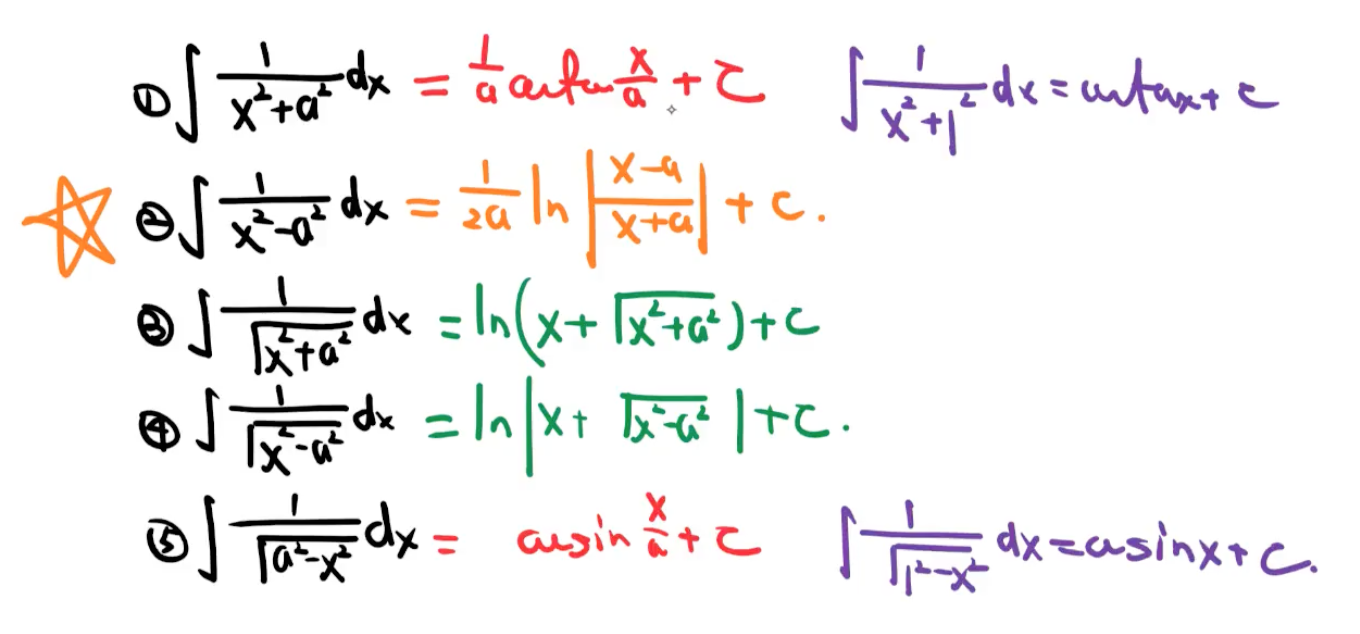 ① ∫ 1/(x²+a²) dx = 1/a arctan x/a + C ∫ 1/(x²+1²) dx = arctanx + C
② ∫ 1/(x²-a²) dx = 1/2a ln |(x-a)/(x+a)| + C.
③ ∫ 1/√(x²+a²) dx = ln(x+√(x²+a²))+C
④ ∫ 1/√(x²-a²) dx = ln|x+√(x²-a²)|+C.
⑤ ∫ 1/√(a²-x²) dx = arcsin x/a + C ∫ 1/√(1²-x²) dx = arcsinx + C.